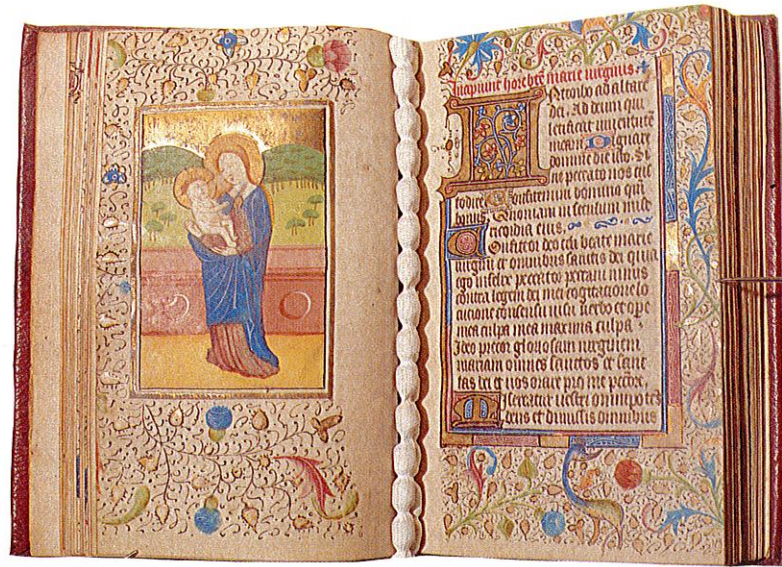 Incipiunt hore bte marie virginis.
Introibo ad altare
dei. Ad deum qui
letificat iuventute
meam. Dignare
domine die isto. Si
ne peccato nos cus
todire. Confitemini domino qui
bonus. Quoniam in seculum mise
ricordia eius.
Confiteor deo celi beate marie
virgini et omnibus sanctis dei quia
ego infelix peccator peccavi nimis
contra legem dei mei cogitacione lo
cucione consensu visu verbo et ope
mea culpa mea maxima culpa.
Ideo precor gloriosam virginem
mariam omnes sanctos et sanc
tas dei et vos orare pro me
Misereatur vestri omnipotes
deus et dimissis omnibus